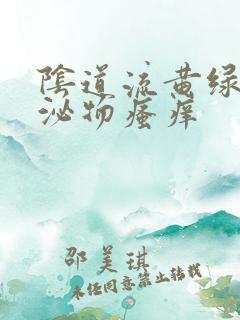 陰道流黄绿
泌物瘙痒
邵美琪
未经同意禁止转载